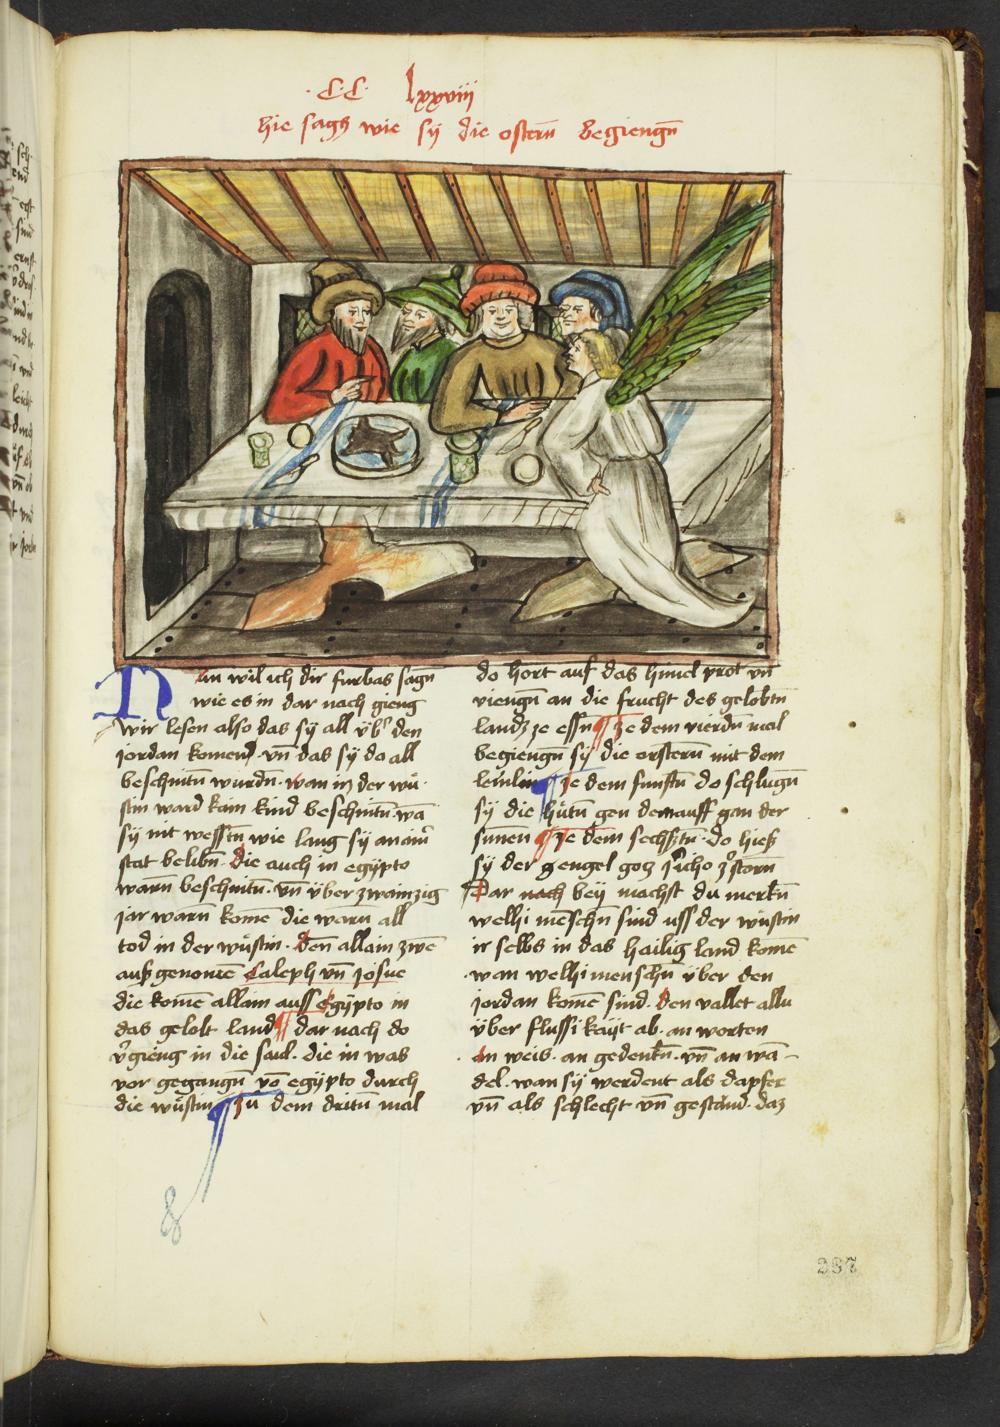 ·C·C· lxxviii
hie sagt wie sÿ die ostern̄ begiengn̄
Nun wil ich dir furbas sagn
wie es in dar nach gieng
wir lesen also das sÿ all vb̾ den
jordan komend · vn̄ das sÿ do all
beschnitn̄ wurdn̄ · wan in der wü
stin ward kain kind beschnitn̄ · wā
sÿ nit wesstn̄ wie lang sÿ an
stat belibn̄ · die auch in egÿpto
warn̄ beschnitn̄ · vn̄ v̈ber zwainzig
jar warn̄ komē die warn all
tod in der wüstin · den allain zwē
ausgenomē Caleph vn̄ josue
die komē allain auss Egÿpto in
das gelobt land ¶ dar nach do
v̾gieng in die saul · die in was
vor gegangn̄ vō egÿpto durch
die wüstin ¶ Zu dem dritn̄ mal
do hort auf das himel prot vn̄
viengn̄ an die frucht des gelobtn
landz ze essn̄ ¶ Ze dem vierdn̄ mal
begiengn̄ sÿ die ostern̄ mit dem
lemlin ¶ Ze dem funftn̄ do schlugn̄
sÿ die hütn̄ gen dem auff gan der
sunnen ¶ Ze dem sechstn̄ · do hieß
sÿ der engel gotz jericho zerstörn
Dar nach beÿ machst du merkn̄
welhi menschn̄ sind uss der wüstin
ir selbs in das hailig land komē
· wan welhi menschn über den
jordan komē sind · den vallet allu
über flussikaÿt ab · an worten
· an weis · an gedenkn̄ · vn̄ an wā-
del · wan sÿ werdent als dapfer
vn̄ als schlecht vn̄ gestand · daz
287